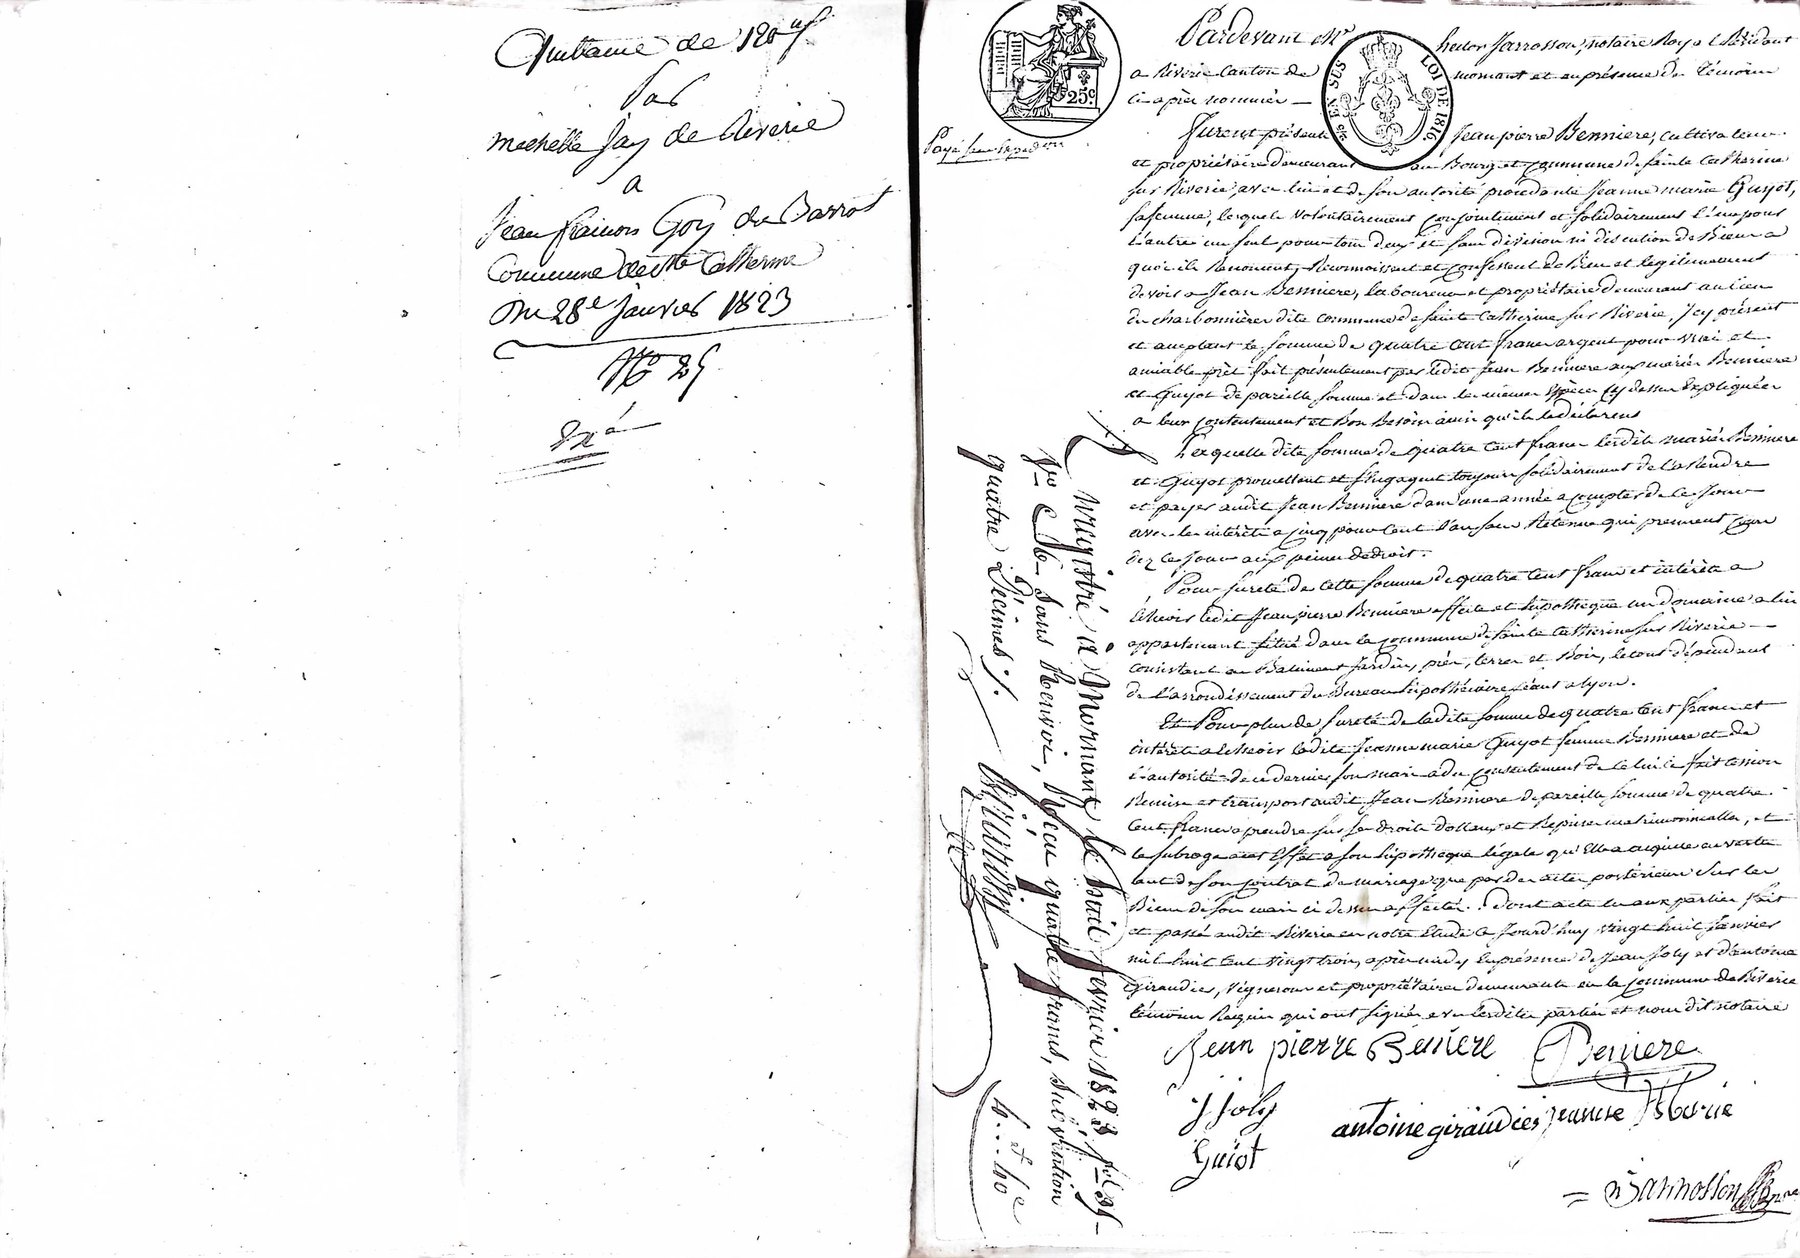 Quittance de 120f
Par
michelle Jay de Riverie
a
Jean francois Goy de Barrot
Commune de Ste Catherine
Du 28e Janvier 1823
No 25
25c.
EN SUS LOI DE 1816
Pardevant Me hector Jarrosson, notaire Royal Résidant
a Riverie Canton de mornant et en présence de témoins
Ci après nommés —
furent présents Jean pierre Benniere, cultivateur
et propriétaire demeurant au Bourg et commune de sainte Catherine
sur Riverie, avec lui et de son autorité procédante Jeanne marie Guyot,
sa femme, lesquels volontairement conjointement et solidairement l'un pour
l'autre un seul pour tous deux et sans division ni discution de Biens a
quoi ils Renoncent, Reconnoissent et confessent de Bien et legitimement
devoir a Jean Benniere, laboureur et propriétaire demeurant au lieu
de charbonnières dite commune de sainte Catherine sur Riverie, Icy présent
et acceptant la somme de quatre cent francs argent pour vrai et
amiable prêt fait présentement par ledit Jean Benniere aux mariés Benniere
et Guyot de pareille somme et dans les mêmes espèces cy dessus expliquées
a leur contentement et Bon Besoin ainsi qu'ils le déclarent
Laquelle dite somme de quatre cent francs lesdits mariés Benniere
et Guyot promettent et s'engagent toujours solidairement de la Rendre
et payer audit Jean Benniere dans une année a compter de ce Jour
avec les intérêts a cinq pour cent l'an sans Retenue qui prennent cours
dez ce jour aux peines de droit.
Pour sureté de cette somme de quatre cent francs et intérêts a
échevoir ledit Jean pierre Benniere affecte et hipotheque un domaine a lui
appartenant situé dans la commune de sainte Catherine sur Riverie —
consistant en Batiment Jardin, prés, terres et Bois, le tout dépendant
de l'arrondissement du Bureau hipothécaire séant a lyon.
Et Pour plus de sureté de ladite somme de quatre cent francs et
intérêts a échevoir ladite Jeanne marie Guyot femme Benniere et de
l'autorité de ce dernier son mari a du consentement de celui ci fait cession
Remise et transport audit Jean Benniere de pareille somme de quatre
cent francs a prendre sur ses droits dottaux et Reprises matrimonialles, et
le subroge a cet Effet a son hipotheque légale qu'Elle a acquise en vertu
tant de son contrat de mariage que par des actes postérieurs sur les
Biens de son mari ci dessus affectés. Dont acte lu aux parties fait
et passé audit Riverie en notre Etude ce Jourd'huy vingt huit Janvier
mil huit cent vingt trois, après midy En présence de Jean Joly et d'antoine
Giraudier, vignerons et propriétaires demeurants en la commune de Riverie
témoins Requis qui ont signés avec lesdites parties et nous dit notaire
Jean pierre Beniere Beniere
J Joly antoine giraudier jeanne Marie
Guiot
Jarrosson
Enregistré à Mornant le huit fevrier 1823 fol 25
Vo Ce 6 sans Renvoi, Reçu quatre francs, subvention
quatre Décimes
4 f 40 c